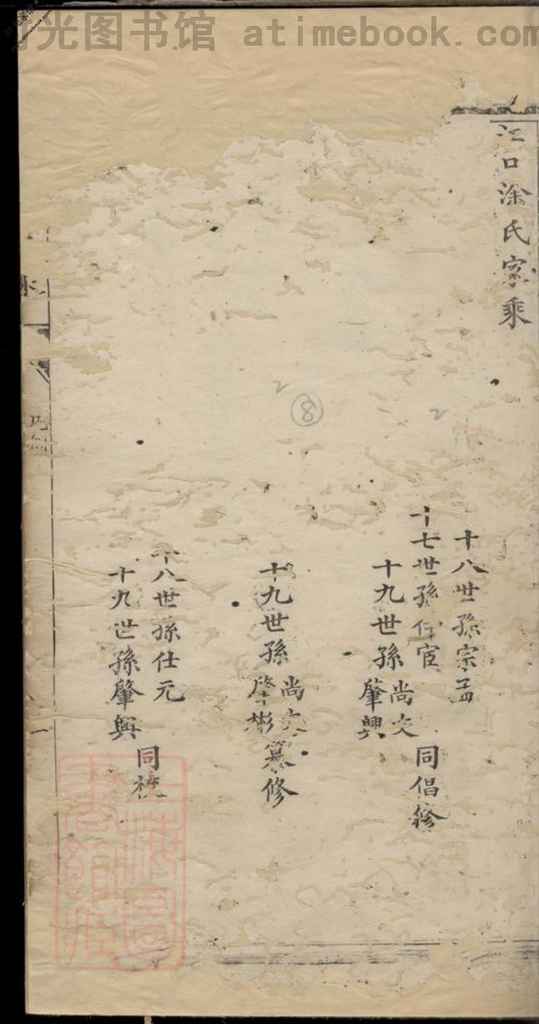 光图书馆 atimebook.com
口涂氏家乘
十八世孫宗孟
十七世孫仕宦
十九世孫尚文肇興
同倡修
十九世孫尚文肇彬纂修
十八世孫仕元
十九世孫肇興
同校
一
8